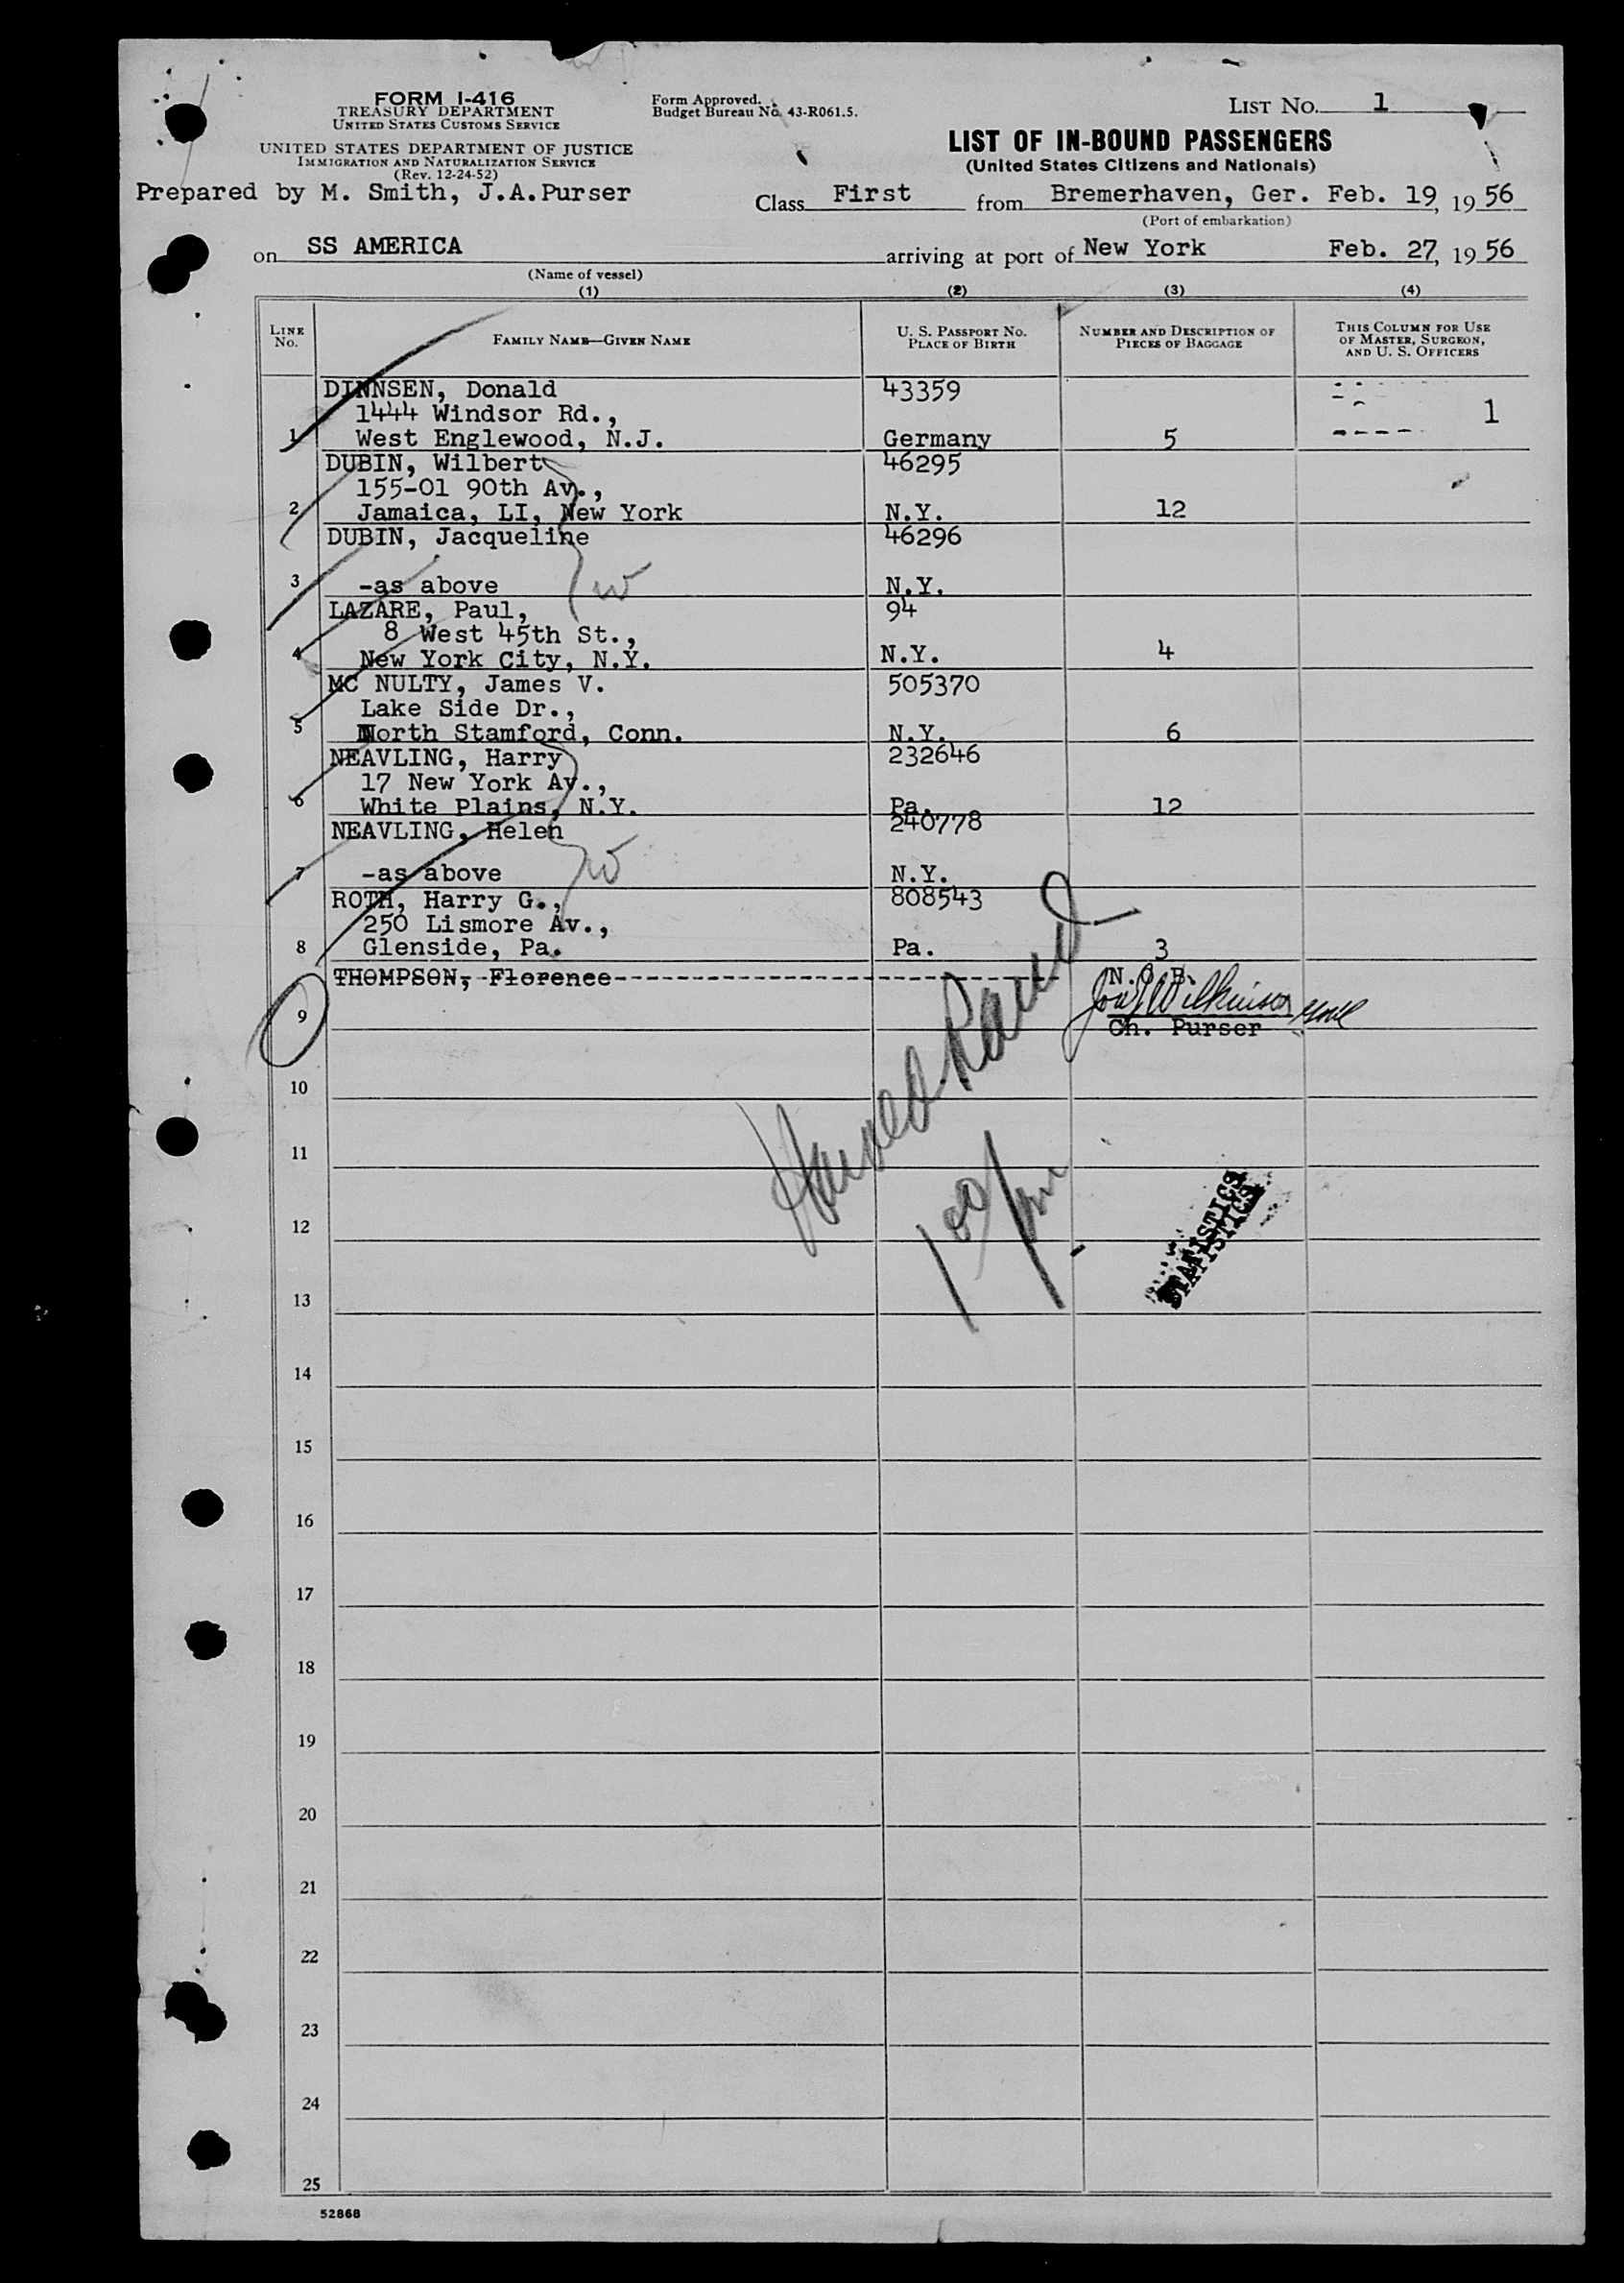 FORM I-416
TREASURY DEPARTMENT
UNITED STATES CUSTOMS SERVICE
UNITED STATES DEPARTMENT OF JUSTICE
IMMIGRATION AND NATURALIZATION SERVICE
(Rev. 12-24-52)
Form Approved.
Budget Bureau No. 43-R061.5.
LIST No. 1
LIST OF IN-BOUND PASSENGERS
(United States Citizens and Nationals)
Prepared by M. Smith, J.A.Purser
Class First from Bremerhaven, Ger. Feb. 19, 1956
(Port of embarkation)
on SS AMERICA arriving at port of New York Feb. 27, 1956
(Name of vessel)
(1) (2) (3) (4)
LINE No. FAMILY NAME—GIVEN NAME U. S. PASSPORT No. PLACE OF BIRTH NUMBER AND DESCRIPTION OF PIECES OF BAGGAGE THIS COLUMN FOR USE OF MASTER, SURGEON, AND U. S. OFFICERS
DINNSEN, Donald 43359
1444 Windsor Rd., 1
1 West Englewood, N.J. Germany 5
DUBIN, Wilbert 46295
155-01 90th Av.,
2 Jamaica, LI, New York N.Y. 12
DUBIN, Jacqueline 46296
3 -as above N.Y.
W
LAZARE, Paul, 94
8 West 45th St.,
4 New York City, N.Y. N.Y. 4
MC NULTY, James V. 505370
Lake Side Dr.,
5 North Stamford, Conn. N.Y. 6
NEAVLING, Harry 232646
17 New York Av.,
6 White Plains, N.Y. Pa. 12
NEAVLING, Helen 240778
7 -as above N.Y.
W
ROTH, Harry G., 808543
250 Lismore Av.,
8 Glenside, Pa. Pa. 3
THOMPSON, Florence N.O.B.
9 Wilkinson
Ch. Purser
10
11
12
STATISTICS
STATISTICS
13
14
15
16
17
18
19
20
21
22
23
24
25
52868